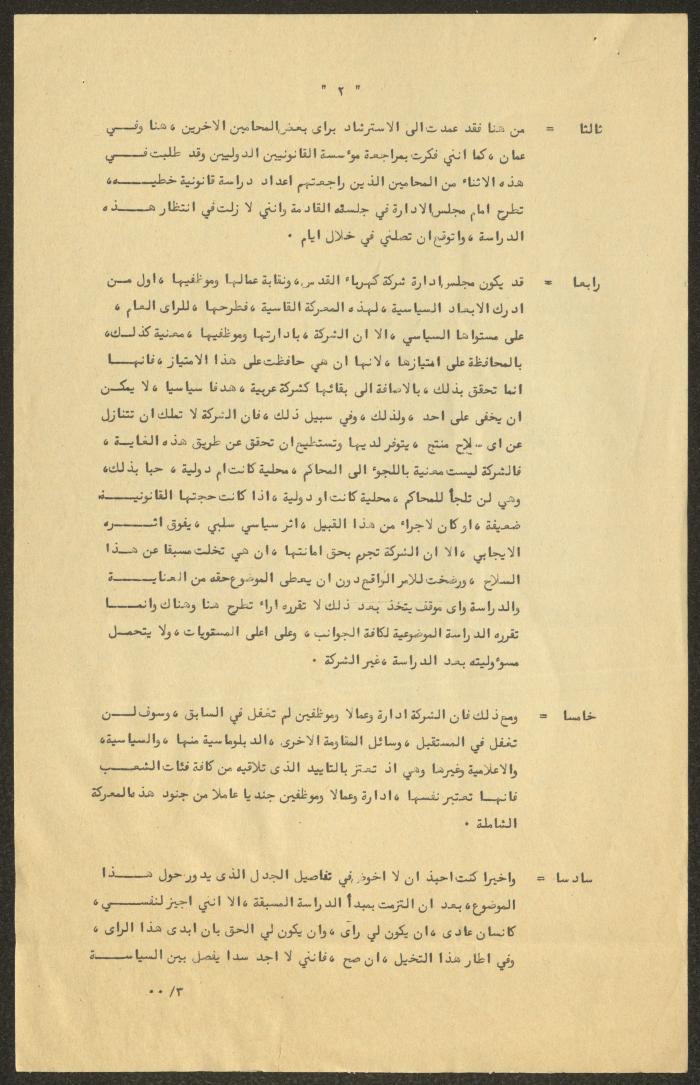 " ٢ "
ثالثا = من هنا فقد عمدت الى الاسترشاد براى بعض المحامين الاخرين ، هنا وفـــي
عمان ، كما انني فكرت بمراجعة مؤسسة القانونيين الدوليين وقد طلبت فـــي
هذه الاثناء من المحامين الذين راجعتهم اعداد دراسة قانونية خطيـــه ،
تطرح امام مجلس الادارة في جلسته القادمة وانني لا زلت في انتظار هـــذه
الدراسة ، واتوقع ان تصلني في خلال ايام .
رابعا = قد يكون مجلس ادارة شركة كهرباء القدس ، ونقابة عمالها وموظفيها ، اول مــن
ادرك الابعاد السياسية ، لهذه المعركة القاسية ، فطرحها ، للراى العام ،
على مستواها السياسي ، الا ان الشركة ، بادارتها وموظفيها ، معنية كذلك ،
بالمحافظة على امتيازها ، لانها ان هي حافظت على هذا الامتياز ، فانهـــا
انما تحقق بذلك ، بالاضافة الى بقائها كشركة عربية ، هدفا سياسيا ، لا يمكــن
ان يخفى على احد ، ولذلك ، وفي سبيل ذلك ، فان الشركة لا تملك ان تتنازل
عن اى سلاح منتج ، يتوفر لديها وتستطيع ان تحقق عن طريق هذه الغايــة ،
فالشركة ليست معنية باللجوء الى المحاكم ، محلية كانت ام دولية ، حبا بذلك ،
وهي لن تلجأ للمحاكم ، محلية كانت او دولية ، اذا كانت حجتها القانونيـــة
ضعيفة ، او كان لاجراء من هذا القبيل ، اثر سياسي سلبي ، يفوق اثـــره
الايجابي ، الا ان الشركة تجرم بحق امانتها ، ان هي تخلت مسبقا عن هـــذا
السلاح ، ورضخت للامر الواقع دون ان يعطى الموضوع حقه من العنايـــة
والدراسة واى موقف يتخذ بعد ذلك لا تقرره اراء تطرح هنا وهناك وانمـــا
تقرره الدراسة الموضوعية لكافة الجوانب ، وعلى اعلى المستويات ، ولا يتحمــل
مسؤوليته بعد الدراسة ، غير الشركة .
خامسا = ومع ذلك فان الشركة ادارة وعمالا وموظفين لم تغفل في السابق ، وسوف لـــن
تغفل في المستقبل ، وسائل المقاومة الاخرى ، الدبلوماسية منها ، والسياسية ،
والاعلامية وغيرها وهي اذ تعتز بالتاييد الذى تلاقيه من كافة فئات الشعـــب
فانهــا تعتبر نفسها ، ادارة وعمالا وموظفين جنديا عاملا من جنود هذه المعركة
الشاملة .
سادسا = واخيرا كنت احبذ ان لا اخوض في تفاصيل الجدل الذى يدور حول هـــذا
الموضوع ، بعد ان التزمت بمبدأ الدراسة المسبقة ، الا انني اجيز لنفســـي ،
كانسان عادى ، ان يكون لي رأى ، وان يكون لي الحق بان ابدى هذا الراى ،
وفي اطار هذا التخيل ، ان صح ، فانني لا اجد سدا يفصل بين السياســـة
٣/ ٠٠